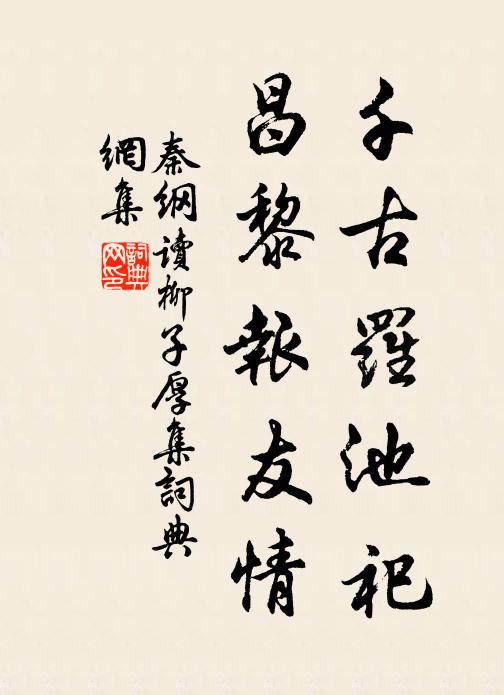 千古羅池祀
昌黎報友情
秦綱讀柳子厚集詞典
網集
詞典
网印